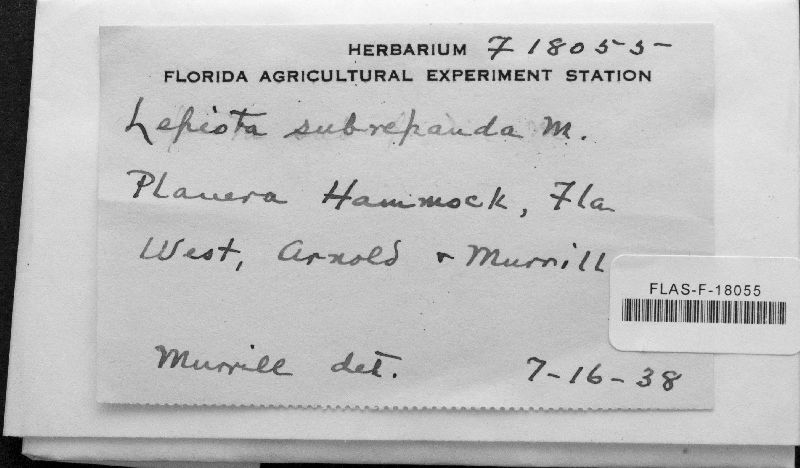 HERBARIUM F 18055
FLORIDA AGRICULTURAL EXPERIMENT STATION
Lepiota subrepanda M.
Planera Hammock, Fla
West, Arnold & Murrill
FLAS-F-18055
Murrill det. 7-16-38